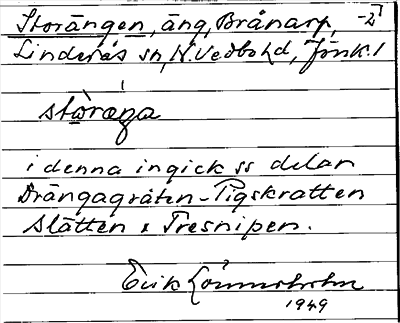 Storängen, äng, Brånarp, -2
Linderås sn, N. Vedbo hd, Jönk. l
i denna ingick ss delar
Drängagråten - Pigskratten
Slätten & Tresnipen.
Erik Lönnerholm
1949